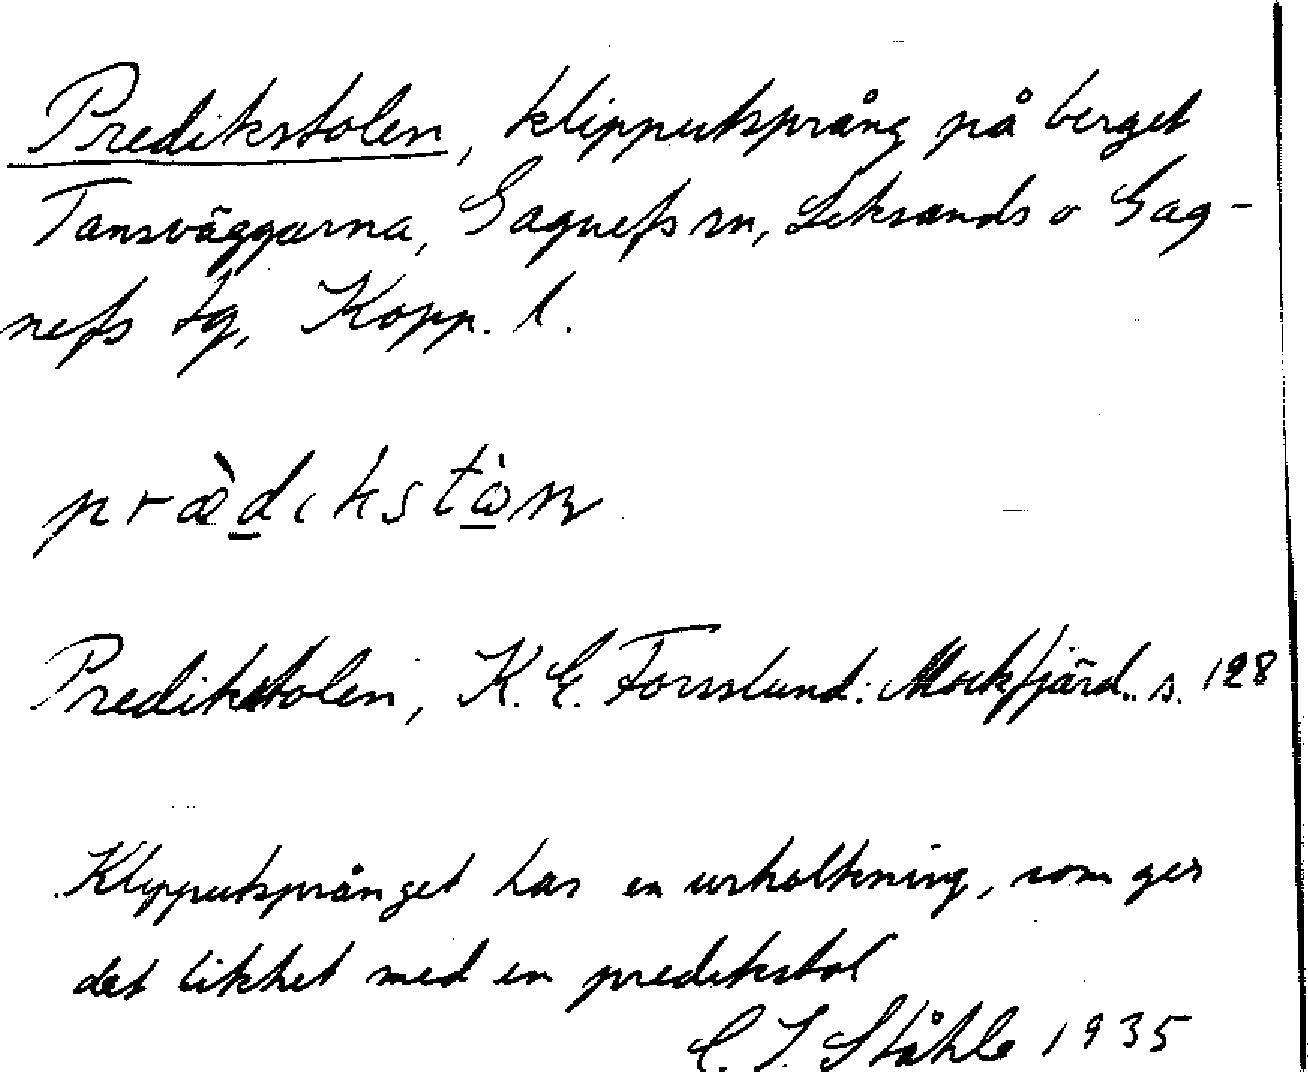 Predikstolen, klipputsprång på berget
Tansväggarna, Gagnefs sn, Leksands o Gag-
nefs tg, Kopp. l.
Predikstolen, K. E. Forsslund: Mockfjärd.. s. 128
Klipputsprånget har en urholkning, som ger
det likhet med en predikstol
C. I. Ståhle 1935